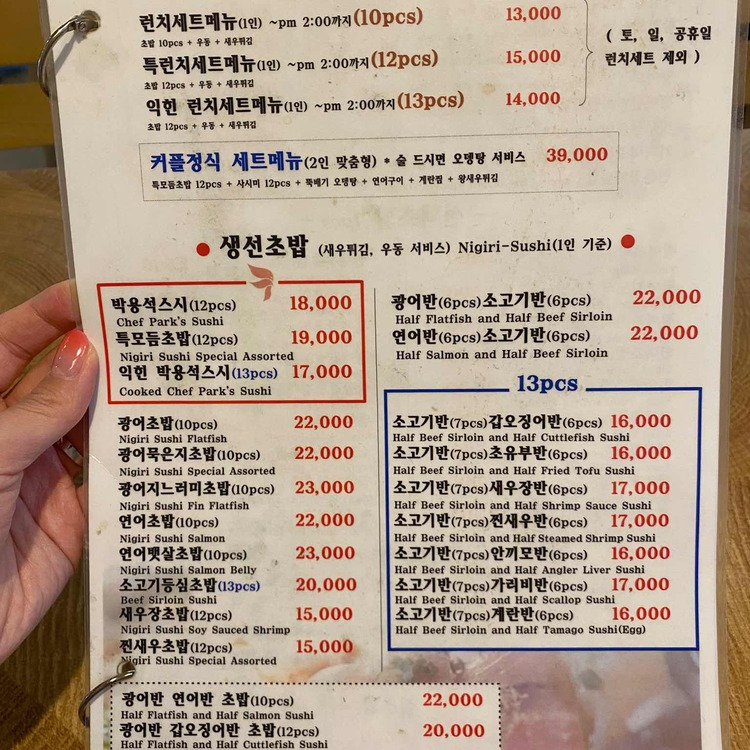 런치세트메뉴(1인) ~pm 2:00까지(10pcs) 13,000
초밥 10pcs + 우동 + 새우튀김
특런치세트메뉴(1인) ~pm 2:00까지(12pcs) 15,000
초밥 12pcs + 우동 + 새우튀김
익힌 런치세트메뉴(1인) ~pm 2:00까지(13pcs) 14,000
초밥 12pcs + 우동 + 새우튀김
( 토, 일, 공휴일
런치세트 제외 )
커플정식 세트메뉴(2인 맞춤형) * 술 드시면 오뎅탕 서비스 39,000
특모듬초밥 12pcs + 사시미 12pcs + 뚝배기 오뎅탕 + 연어구이 + 계란찜 + 왕새우튀김
생선초밥 (새우튀김, 우동 서비스) Nigiri-Sushi(1인 기준)
박용석스시(12pcs) 18,000
Chef Park's Sushi
특모듬초밥(12pcs) 19,000
Nigiri Sushi Special Assorted
익힌 박용석스시(13pcs) 17,000
Cooked Chef Park's Sushi
광어초밥(10pcs) 22,000
Nigiri Sushi Flatfish
광어묵은지초밥(10pcs) 22,000
Nigiri Sushi Special Assorted
광어지느러미초밥(10pcs) 23,000
Nigiri Sushi Fin Flatfish
연어초밥(10pcs) 22,000
Nigiri Sushi Salmon
연어뱃살초밥(10pcs) 23,000
Nigiri Sushi Salmon Belly
소고기등심초밥(13pcs) 20,000
Beef Sirloin Sushi
새우장초밥(12pcs) 15,000
Nigiri Sushi Soy Sauced Shrimp
찐새우초밥(12pcs) 15,000
Nigiri Sushi Special Assorted
광어반(6pcs)소고기반(6pcs) 22,000
Half Flatfish and Half Beef Sirloin
연어반(6pcs)소고기반(6pcs) 22,000
Half Salmon and Half Beef Sirloin
13pcs
소고기반(7pcs)갑오징어반(6pcs) 16,000
Half Beef Sirloin and Half Cuttlefish Sushi
소고기반(7pcs)초유부반(6pcs) 16,000
Half Beef Sirloin and Half Fried Tofu Sushi
소고기반(7pcs)새우장반(6pcs) 17,000
Half Beef Sirloin and Half Shrimp Sauce Sushi
소고기반(7pcs)찐새우반(6pcs) 17,000
Half Beef Sirloin and Half Steamed Shrimp Sushi
소고기반(7pcs)안끼모반(6pcs) 16,000
Half Beef Sirloin and Half Angler Liver Sushi
소고기반(7pcs)가리비반(6pcs) 17,000
Half Beef Sirloin and Half Scallop Sushi
소고기반(7pcs)계란반(6pcs) 16,000
Half Beef Sirloin and Half Tamago Sushi(Egg)
광어반 연어반 초밥(10pcs) 22,000
Half Flatfish and Half Salmon Sushi
광어반 갑오징어반 초밥(12pcs) 20,000
Half Flatfish and Half Cuttlefish Sushi